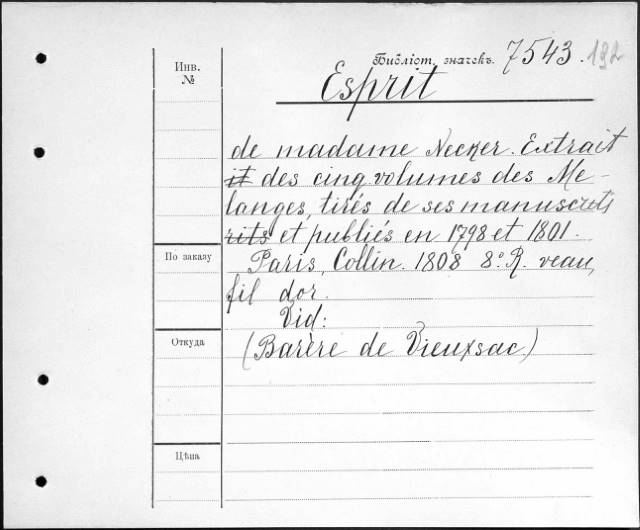 Инв.
№
Библіот. значекъ. 7543. 192
Esprit
de madame Necker. Extrait
it des cinq volumes des Me-
langes, tirés de ses manuscrits
rits et publiés en 1798 et 1801.
По заказу
Paris, Collin. 1808 8º. R. veau,
fil dor.
Vid:
Откуда
(Barère de Vieuxsac.)
Цѣна